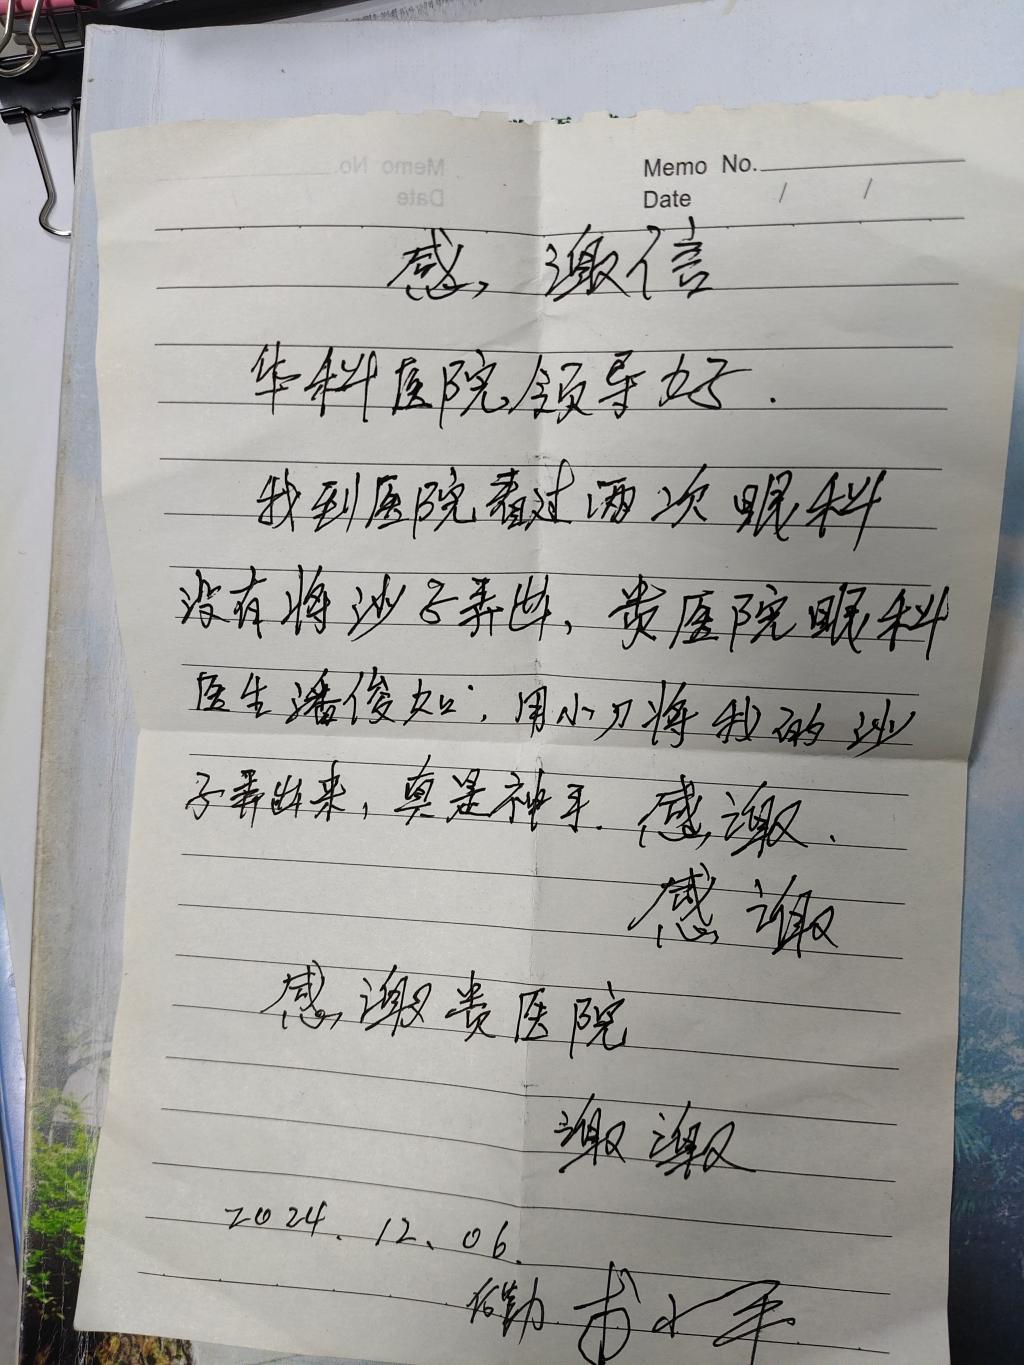 Memo No.
Date / /
感谢信
华科医院领导好.
我到医院看过两次眼科
没有将沙子弄出、贵医院眼科
医生潘俊如、用小刀将我的沙
子弄出来,真是神手.感谢.
感谢
感谢贵医院
谢谢
2024.12.06.